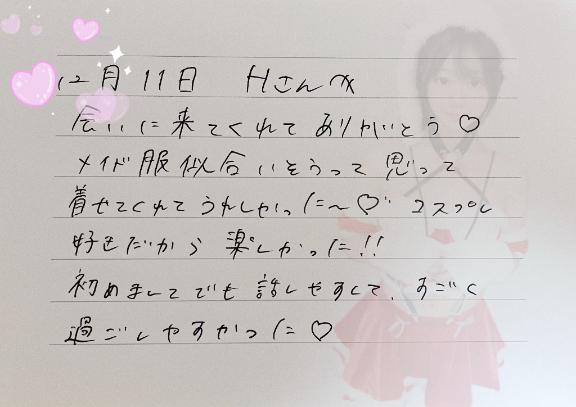 12月11日 Hさんへ
会いに来てくれてありがとう♡
メイド服似合いそうって思って
着せてくれてうれしかった〜♡ コスプレ
好きだから楽しかった!!
初めましてでも話しやすくて、すごく
過ごしやすかった♡